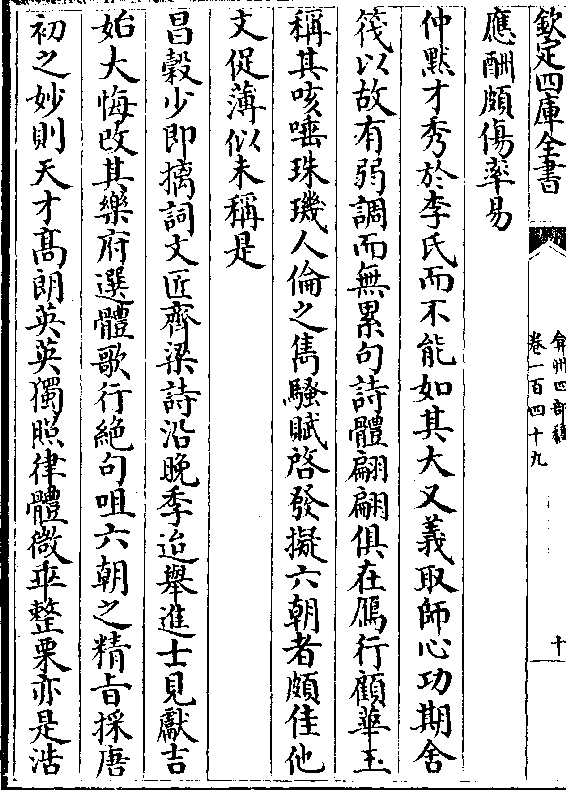 欽定四庫全書
弇州四部稿
卷一百四十九
十
應酬頗傷率易
仲黙才秀於李氏而不能如其大又義取師心功期舍
筏以故有弱調而無累句詩體翩翩俱在鴈行顧華玉
稱其咳唾珠璣人倫之雋騷賦啓發擬六朝者頗佳他
文促薄似未稱是
昌榖少即摛詞文匠齊梁詩沿晚季迨舉進士見獻吉
始大悔改其樂府選體歌行絶句咀六朝之精㫖採唐
初之妙則天才髙朗英英獨照律體微乖整栗亦是浩